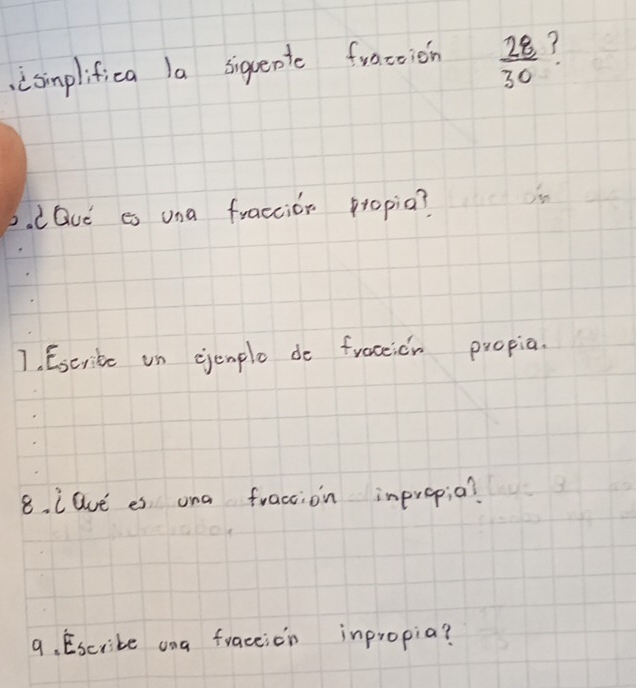 .¿simplifica la siguente fracción 28/30?
.¿Qué es una fracción propia?
7. Escribe un ejenplo de fracción propia.
8. ¿Qué es una fracción inpropia?
9. Escribe una fracción inpropia?